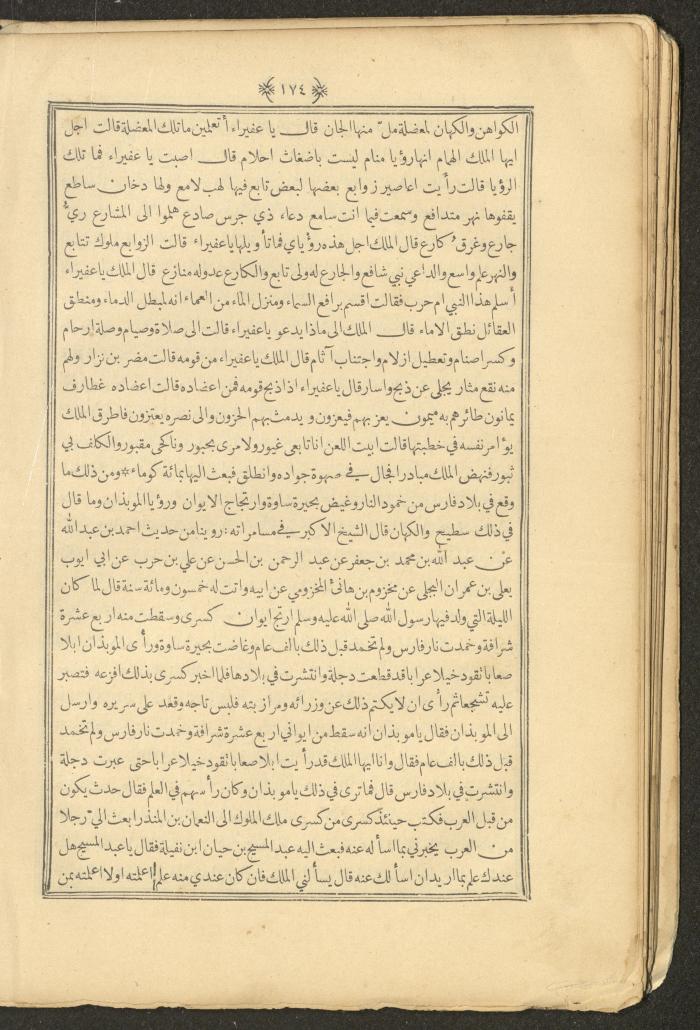 ١٧٤
الكواهن والكهان لمعضلة مل منها الجان قال يا عفيراء أتعلمين ما تلك المعضلة قالت اجل
ايها الملك الهمام انها رؤيا منام ليست باضغاث احلام قال اصبت يا عفيراء فما تلك
الرؤيا قالت رأيت اعاصير زوابع بعضها لبعض تابع فيها لهب لامع ولها دخان ساطع
يقفوها نهر متدافع وسمعت فيما انت سامع دعاء ذي جرس صادع هلموا الى المشارع ريٌّ
جارع وغرقٌ كارع قال الملك اجل هذه رؤياي فما تأويلها يا عفيراء قالت الزوابع ملوك تتابع
والنهر علم واسع والداعي نبي شافع والجارع له ولي تابع والكارع عدو له منازع قال الملك يا عفيراء
أسلم هذا النبي ام حرب فقالت اقسم برافع السماء ومنزل الماء من العماء انه لمبطل الدماء ومنطق
العقائل نطق الاماء قال الملك الى ماذا يدعو يا عفيراء قالت الى صلاة وصيام وصلة ارحام
وكسر اصنام وتعطيل ازلام واجتناب آثام قال الملك يا عفيراء من قومه قالت مضر بن نزار ولهم
منه نقع مثار يجلى عن ذبح واسار قال يا عفيراء اذا ذبح قومه فمن اعضاده قالت اعضاده غطارف
يمانون طائرهم به ميمون يعز بهم فيعزون ويدمث بهم الحزون والى نصره يعتزون فاطرق الملك
يؤامر نفسه في خطبتها قالت ابيت اللعن انا تابعي غيور ولامري بحبور وناكحي مقبور والكلف بي
ثبور فنهض الملك مبادرا فجال في صهوة جواده وانطلق فبعث اليها بمائة كوماء * ومن ذلك ما
وقع في بلاد فارس من خمود النار وغيض بحيرة ساوة وارتجاج الايوان ورؤيا الموبذان وما قال
في ذلك سطيح والكهان قال الشيخ الاكبر في مسامراته : روينا من حديث احمد بن عبد الله
عن عبد الله بن محمد بن جعفر عن عبد الرحمن بن الحسن عن علي بن حرب عن ابي ايوب
يعلى بن عمران البجلي عن مخزوم بن هانئ المخزومي عن ابيه واتت له خمسون ومائة سنة قال لما كان
الليلة التي ولد فيها رسول الله صلى الله عليه وسلم ارتج ايوان كسرى وسقطت منه اربع عشرة
شرافة وخمدت نار فارس ولم تخمد قبل ذلك بالف عام وغاضت بحيرة ساوة ورأى الموبذان ابلا
صعابا تقود خيلا عرابا قد قطعت دجلة وانتشرت في بلادها فلما اخبر كسرى بذلك افزعه فتصبر
عليه تشجيعا ثم رأى ان لا يكتم ذلك عن وزرائه ومرازبته فلبس تاجه وقعد على سريره وارسل
الى الموبذان فقال يا موبذان انه سقط من ايواني اربع عشرة شرافة وخمدت نار فارس ولم تخمد
قبل ذلك بالف عام فقال وانا ايها الملك قد رأيت ابلا صعابا تقود خيلا عرابا حتى عبرت دجلة
وانتشرت في بلاد فارس قال فما ترى في ذلك يا موبذان وكان رأسهم في العلم فقال حدث يكون
من قبل العرب فكتب حينئذ كسرى من كسرى ملك الملوك الى النعمان بن المنذر ابعث الي رجلا
من العرب يخبرني بما اسأله عنه فبعث اليه عبد المسيح بن حيان ابن نفيلة فقال يا عبد المسيح هل
عندك علم بما اريد ان اسألك عنه قال يسألني الملك فان كان عندي منه علم اعلمته اولا اعلمته بمن